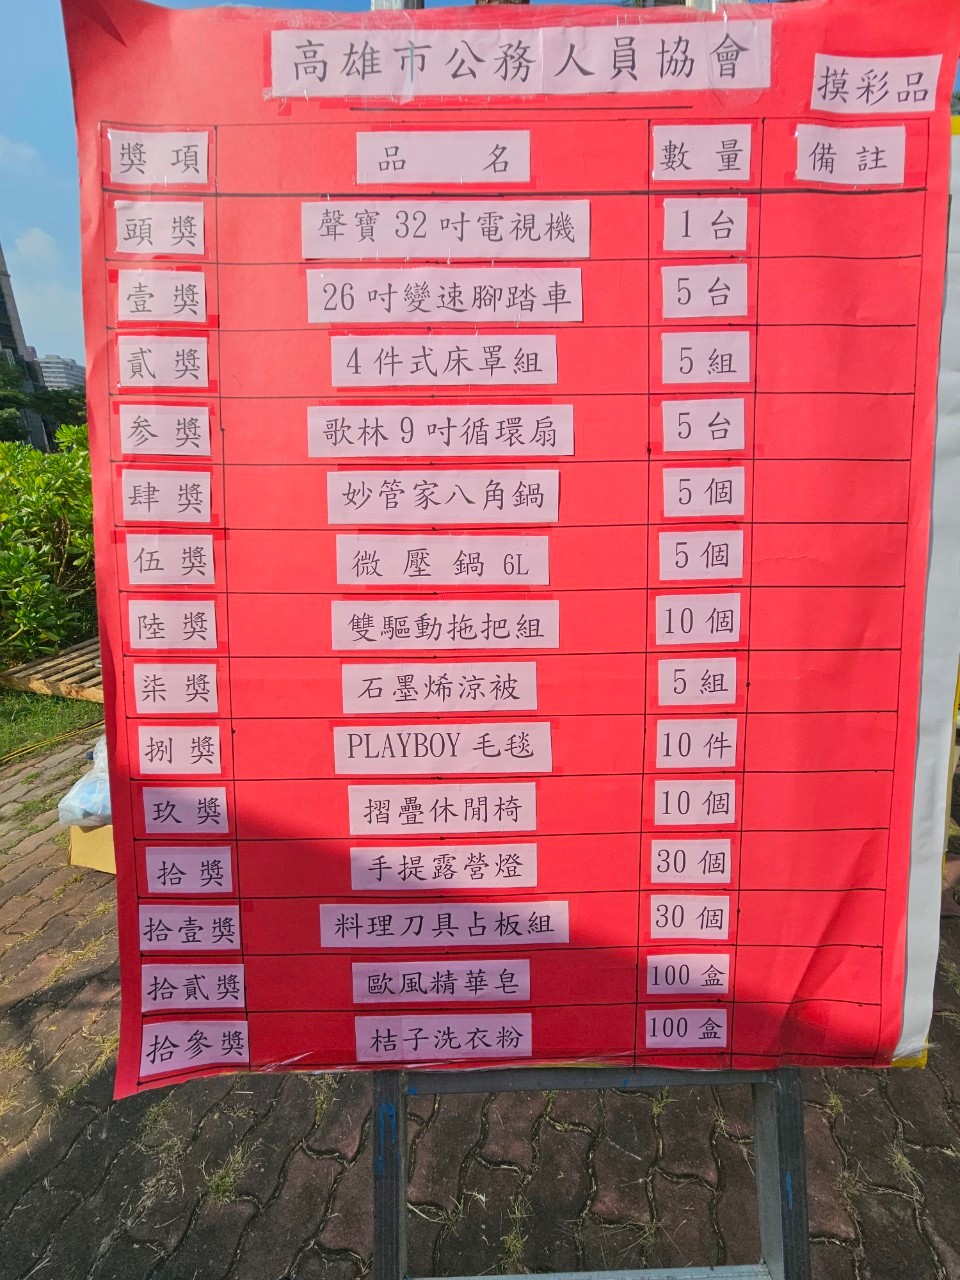 高雄市公務人員協會
摸彩品
獎項 品名 數量 備註
頭獎 聲寶32吋電視機 1台
壹獎 26吋變速腳踏車 5台
貳獎 4件式床罩組 5組
參獎 歌林9吋循環扇 5台
肆獎 妙管家八角鍋 5個
伍獎 微壓鍋6L 5個
陸獎 雙驅動拖把組 10個
柒獎 石墨烯涼被 5組
捌獎 PLAYBOY毛毯 10件
玖獎 摺疊休閒椅 10個
拾獎 手提露營燈 30個
拾壹獎 料理刀具占板組 30個
拾貳獎 歐風精華皂 100盒
拾參獎 桔子洗衣粉 100盒